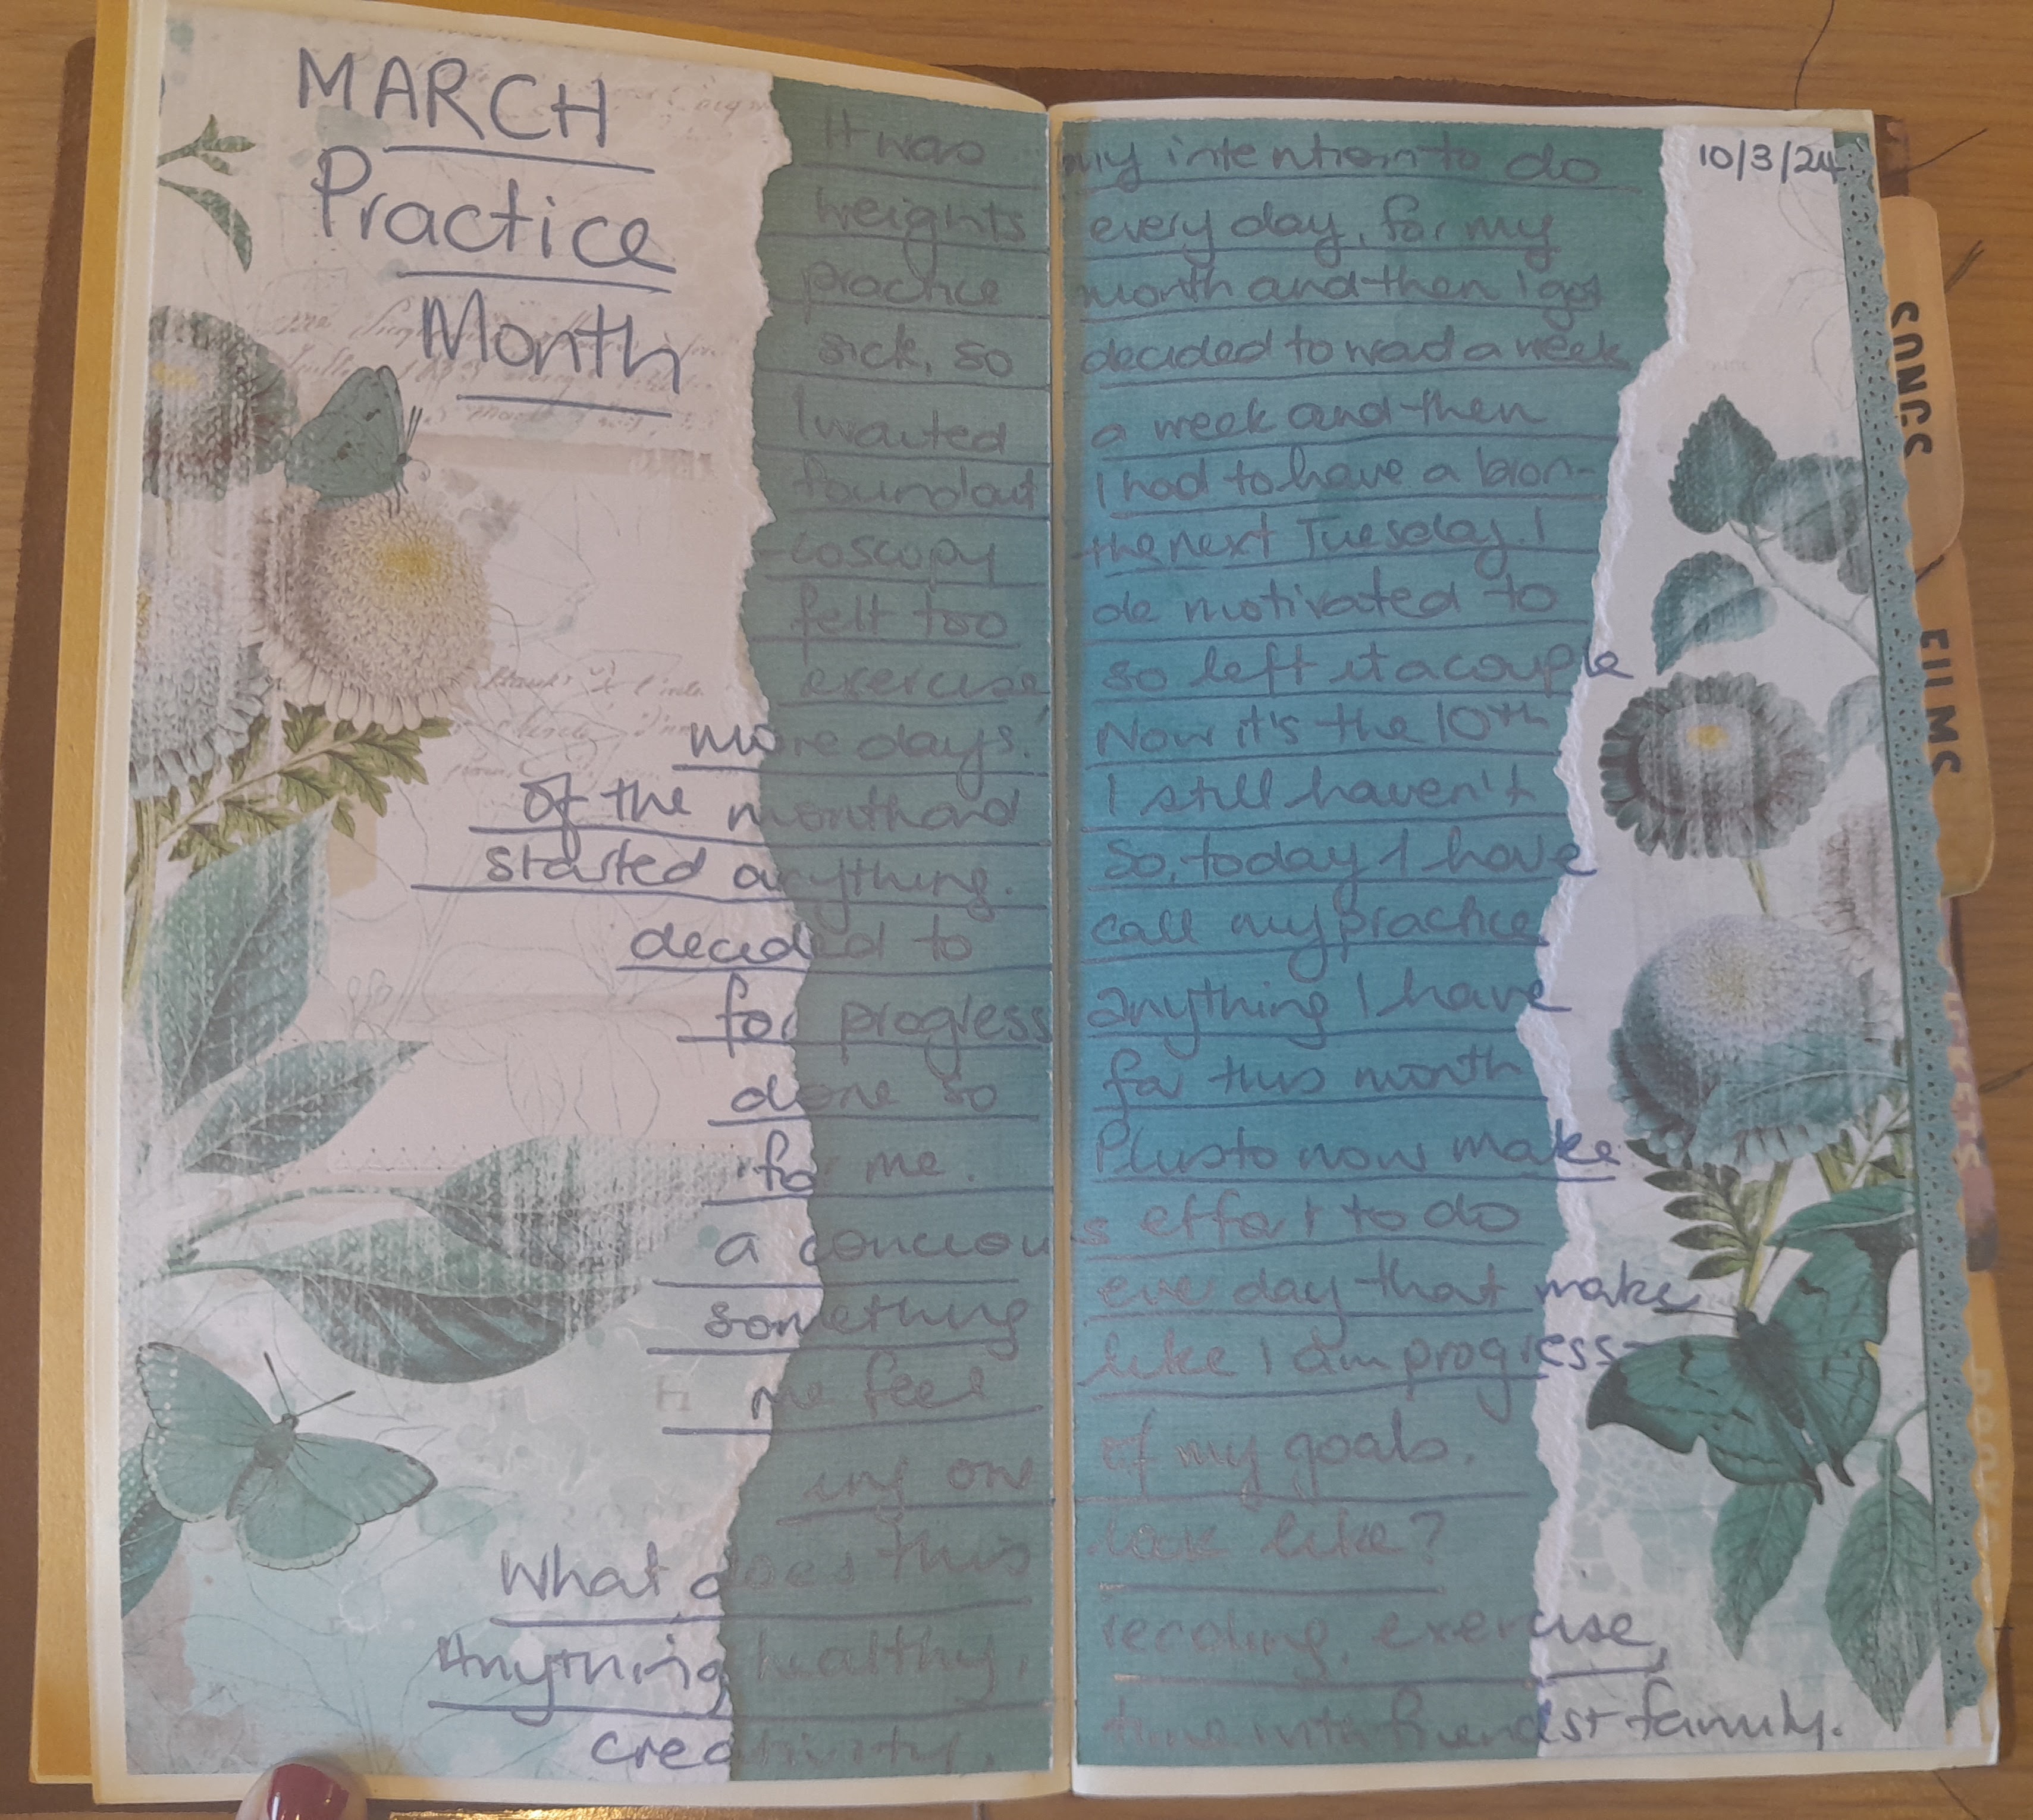 MARCH
Practice
Month
10/3/24
It was my intention to do
weights every day, for my
practice month and then i got
sick, so decided to wait a week
I waited a week and then
found out I had to have a bron-
coscopy the next Tuesday. I
felt too de motivated to
exercise, so left it a couple
more days. Now it's the 10th
of the month and I still haven't
started anything. So, today I have
decided to call my practice
for progress anything I have
done so far this month
for me. Plus to now make
a conciou s effort to do
something ever day that make
me feel like I am progress-
ing one of my goals.
What does this look like?
Anything healthy, reading, exercise,
creativity, time with friends + family.
SONGS
FILMS